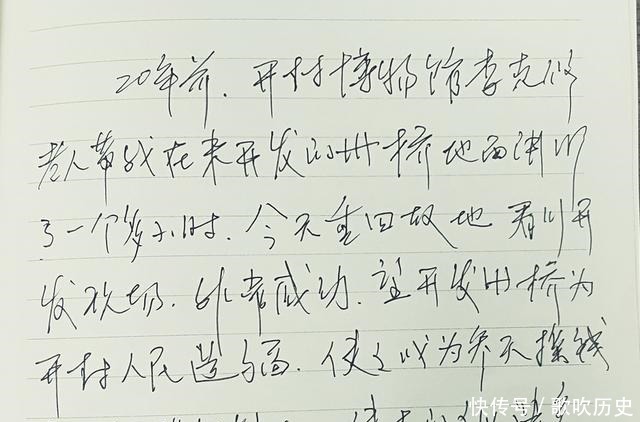 20年前.开封博物馆李克修
老人带我在未开发的州桥地面讲明
了一个多小时.今天重回故地看川开
发现场.非常感动.望开发州桥为
开封人民造福.使之成为参天摇钱
快传号/歌吹历史